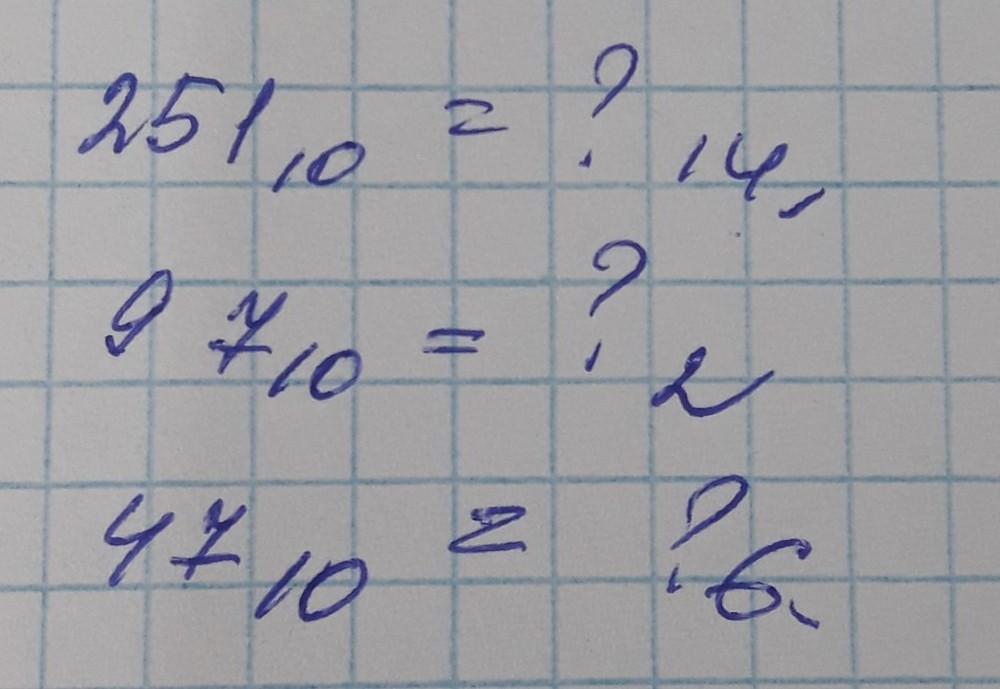 251₁₀ = ?₁₄,
97₁₀ = ?₂
47₁₀ = ?₆.